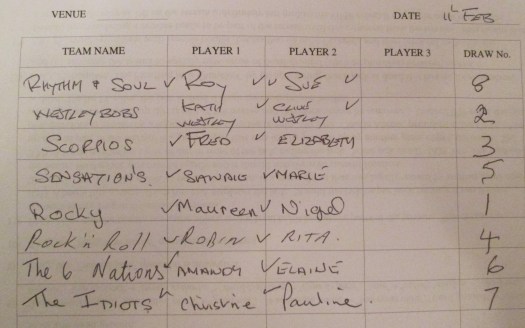 VENUE DATE 11th FEB
TEAM NAME PLAYER 1 PLAYER 2 PLAYER 3 DRAW No.
RHYTHM & SOUL ✓ ROY ✓ ✓ SUE ✓ 8
WESTLEYBOBS KATH WESTLEY ✓ CLIVE WESTLEY ✓ 2
SCORPIOS ✓ FRED ✓ ELIZABETH 3
SENSATION'S. ✓ SANDRE ✓ MARIE 5
Rocky ✓ Maureen ✓ Nigel 1
Rock 'n' Roll ✓ ROBIN ✓ RITA. 4
The 6 Nations ✓ AMANDA ✓ ELAINE 6
The IDIOTS ✓ Christine ✓ Pauline. 7